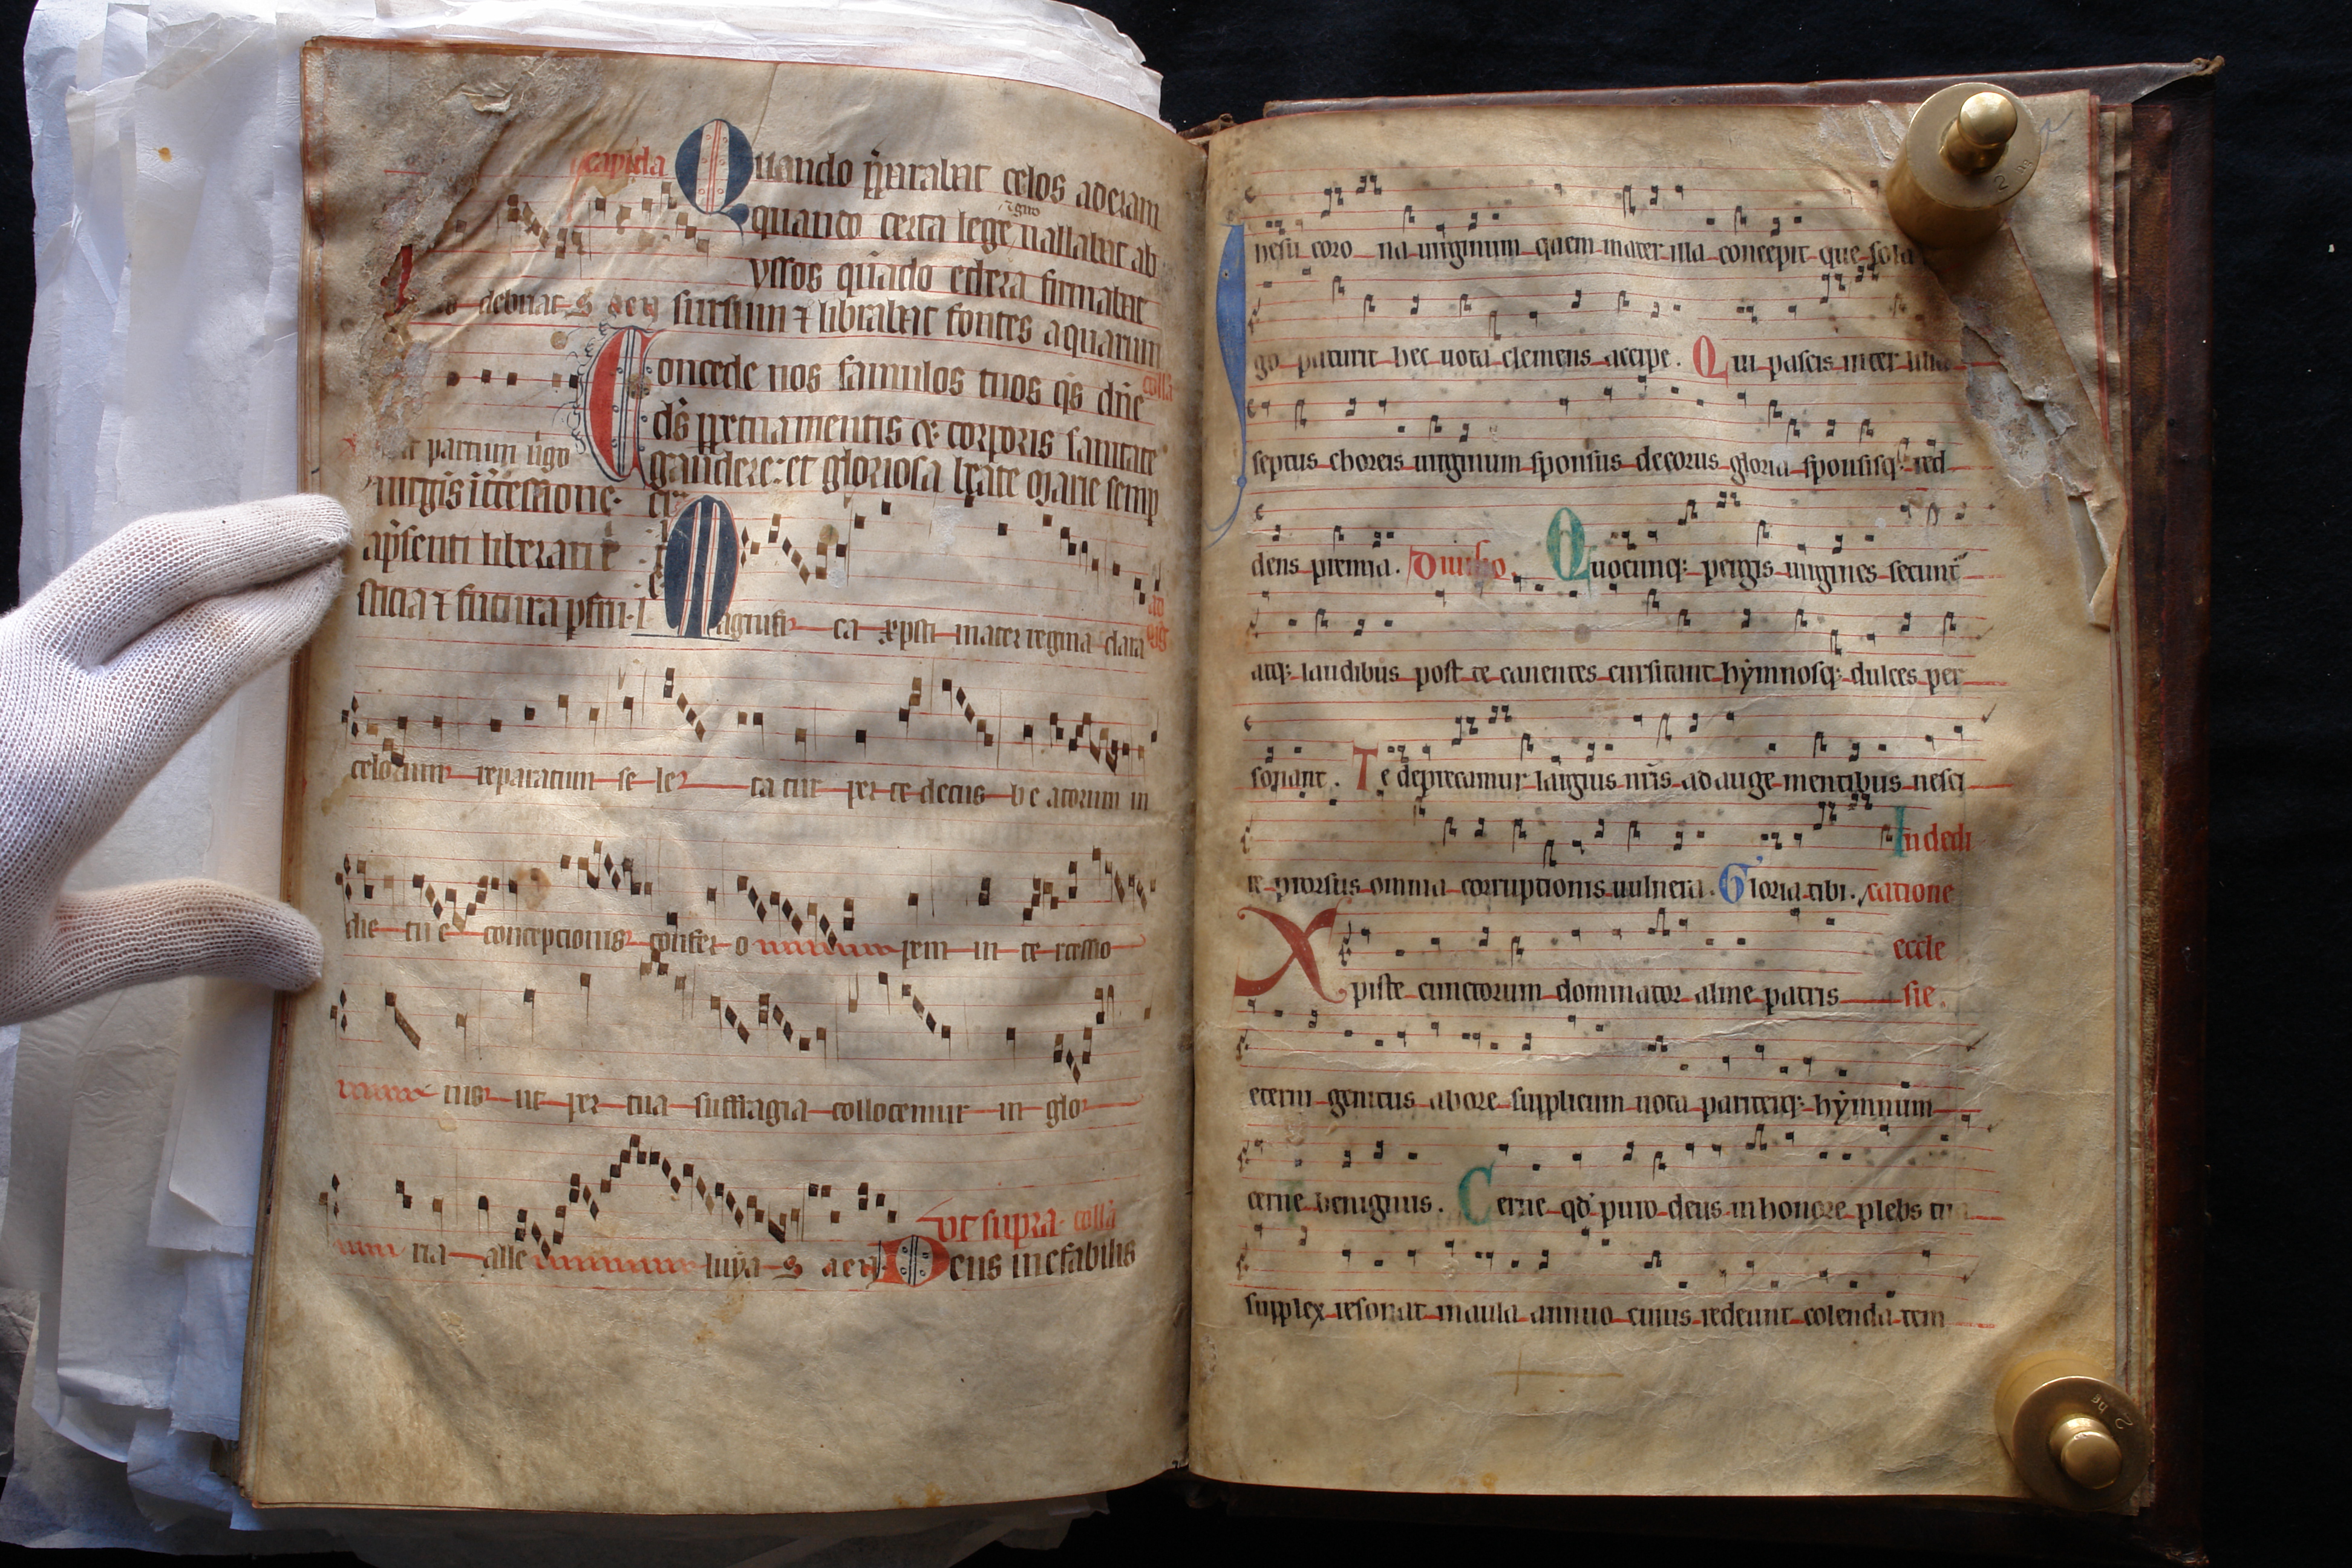 capitula Quando pparabat celos aderam
quando certa lege vallabat ab
yssos quando ethera firmabat
debitat S aeu sursum ⁊ librabat fontes aquarum
Concede nos famulos tuos qs dne colla
ds ppetua mentis et corporis sanitate
partum virgo gaudere: et gloriosa beate marie semp
virgis itcessione.
a psenti liberari
sticia ⁊ futura pfrui
Magnifi ca xpisti mater regina clara
celorum reparatum se le ta tur per te decus be atorum in
die tu e concepcionis confer o pem in te rcessio
nis ut per tua suffragia collocemur in glo
ria alle luya S aeu Deus inefabilis
ut supra colla
Ihesu coro na virginum quem mater illa concepit que sola
go parturit hec vota clemens accipe. Qui pascis inter lilia
septus choreis virginum sponsus decorus gloria sponsisq; red
dens premia. Quocunq; pergis virgines secunt
atq; laudibus post te canentes cursitant hymnosq; dulces per
sonant. Te deprecamur largius nris adauge mentibus nesci
In dedi
re prorsus omnia corruptionis vulnera. Gloria tibi. catione
eccle
Xpiste cunctorum dominator alme patris sie.
eterni genitus ab ore supplicum vota pariterq; hymnum
cerne benignus. Cerne qd puro deus in honore plebs tua
supplex resonat in aula annuo cuius redeunt colenda tem